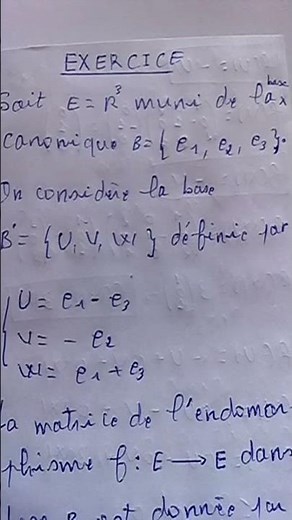 EXERCICE
Soit E = R³ muni de la base
canonique B = {e1, e2, e3}.
On considère la base
B' = {U, V, W} définie par
U = e1 - e3
V = - e2
W = e1 + e3
La matrice de l'endomor-
phisme f : E → E dans
base B est donnée par